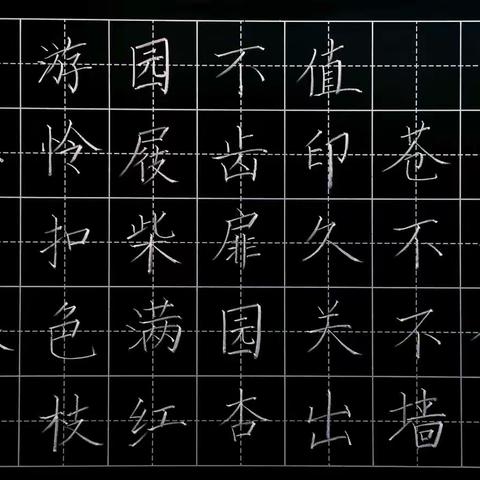 游园不值
怜屐齿印苍
扣柴扉久不
色满园关不
枝红杏出墙